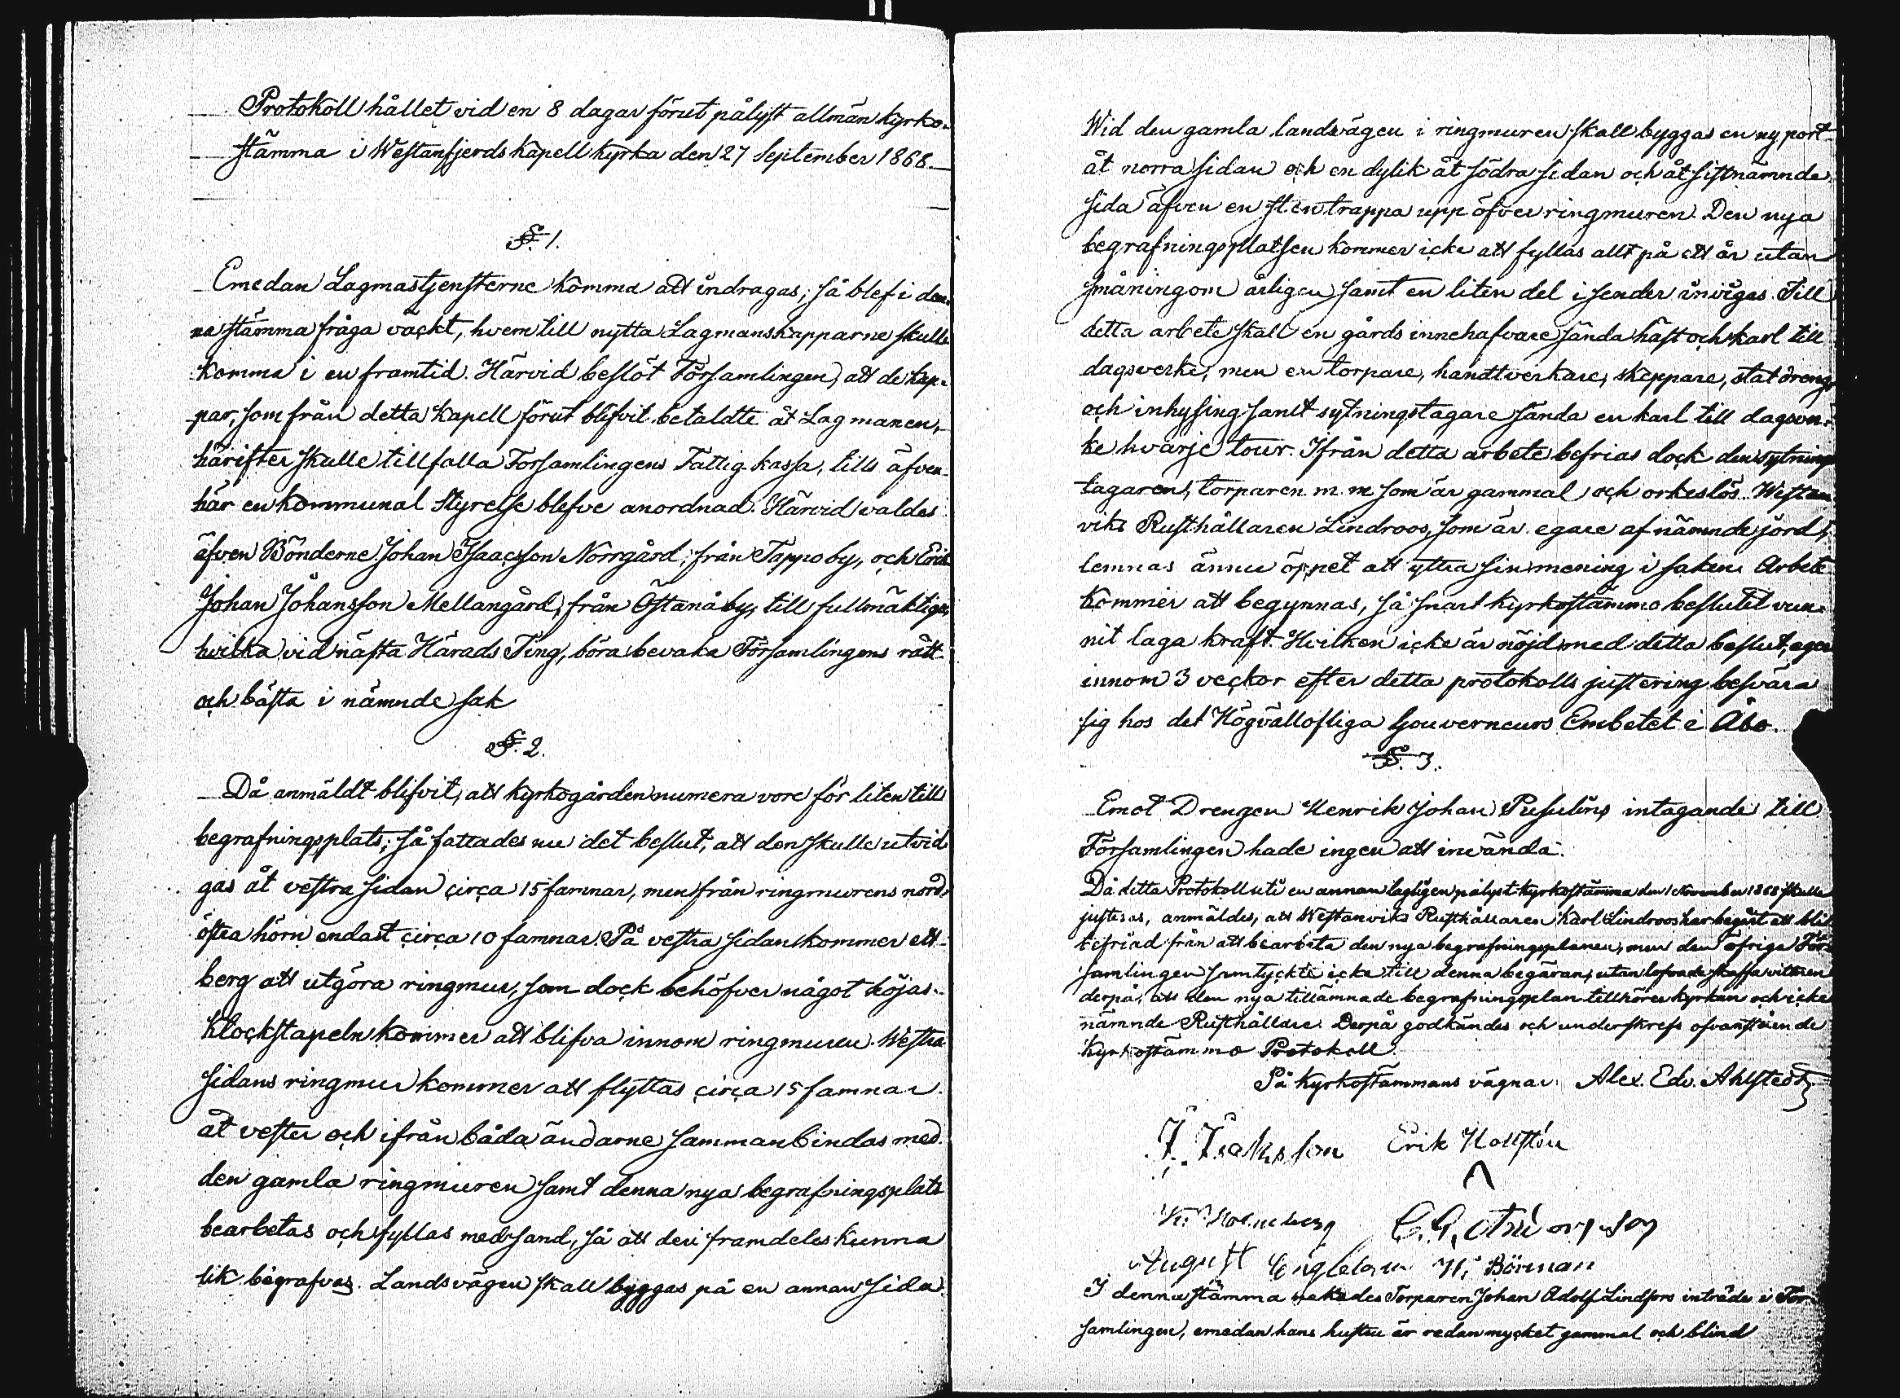 Protokoll hållet vid en 8 dagar förut pålyst allmän kyrko-
stämma i Westanfjerds kapell kyrka den 27 September 1868
§. 1.
Emedan Lagmastjensterne komma att indragas, så blef i den-
na stämma fråga väckt, hvem till nytta Lagmanskapparne skulle
komma i en framtid. Härvid beslöt Församlingen, att de kap-
par, som från detta kapell förut blifvit betaldte åt Lagmanen,
härifter skulle tillfalla Församlingens Fattig kassa, tills äfven
här en kommunal styrelse blefve anordnad. Härvid valdes
äfven Bönderne Johan Isaacsson Norrgård, från Tappo by, och Erik
Johan Johansson Mellangård, från Östanå by, till fullmäktige,
hvilka vid nästa Härads Ting, böra bevaka Församlingens rätt
och bästa i nämnde sak
§. 2.
Då anmäldt blifvit, att kyrkogården numera vore för liten till
begrafningsplats, så fattades nu det beslut, att den skulle utvid
gas åt vestra sidan circa 15 famnar, men från ringmurens nord-
östra hörn endast circa 10 famnar. På vestra sidan kommer ett
berg att utgöra ringmur, som dock behöfver något höjas.
Klockstapeln kommer att blifva innom ringmuren. Westra
sidans ringmur kommer att flyttas circa 15 famnar
åt vester och ifrån båda ändarne sammanbindas med
den gamla ringmuren samt denna nya begrafningsplats
bearbetas och fyllas med sand, så att deri framdeles kunna
lik begrafvas. Landsvägen skall byggas på en annan sida.
Wid den gamla landsvägen i ringmuren skall byggas en ny port
åt norra sidan och en dylik åt södra sidan och åt sistnämnde
sida äfven en stentrappa upp öfver ringmuren. Den nya
begrafningsplatsen kommer icke att fyllas allt på ett år utan
småningom årligen samt en liten del i sender invigas. Till
detta arbete skall en gårds innehafvare sända häst och karl till
dagsverke, men en torpare, handtverkare, skeppare, statdreng,
och inhysing samt sytningstagare sända en karl till dagsver-
ke hvarje tour. Ifrån detta arbete befrias dock den sytnings
tagaren, torparen m. m som är gammal och orkeslös. Westan
viks Rusthållaren Lindroos, som är egare af nämnde jord,
lemnas ännu öppet att yttra sin mening i saken. Arbetet
kommer att begynnas, så snart kyrkostämmo beslutet vun-
nit laga kraft. Hvilken icke är nöjd med detta beslut, eger
innom 3 veckor efter detta protokolls justering besvära
sig hos det Högvällofliga Gouverneurs Embetet i Åbo.
§. 3.
Emot Drengen Henrik Johan intagande till
Församlingen hade ingen att invända.
Då detta Protokoll uti en annan lagligen pålyst kyrkostämma den 1 November 1868 skulle
justeras, anmäldes, att Westanviks Rusthållaren Karl Lindroos har begärt att bli
befriad från att bearbeta den nya begrafningsplanen, men den öfriga För-
samlingen samtyckte icke till denna begäran, utan lofvade skaffa vittnen
derpå, att den nya tillämnade begrafningsplan tillhörer kyrkan och icke
nämnde Rusthållare. Derpå godkändes och underskrefs ofvanstående
kyrkostämmo Protokoll.
På kyrkostämmans vägnar: Alex. Edv. Ahlstedt
J. Isaksson Erik Hollstén
Holmberg
August Englblom Börman
I denna stämma nekades Torparen Johan Adolf Lindfors inträde i För-
samlingen, emedan hans hustru är redan mycket gammal och blind